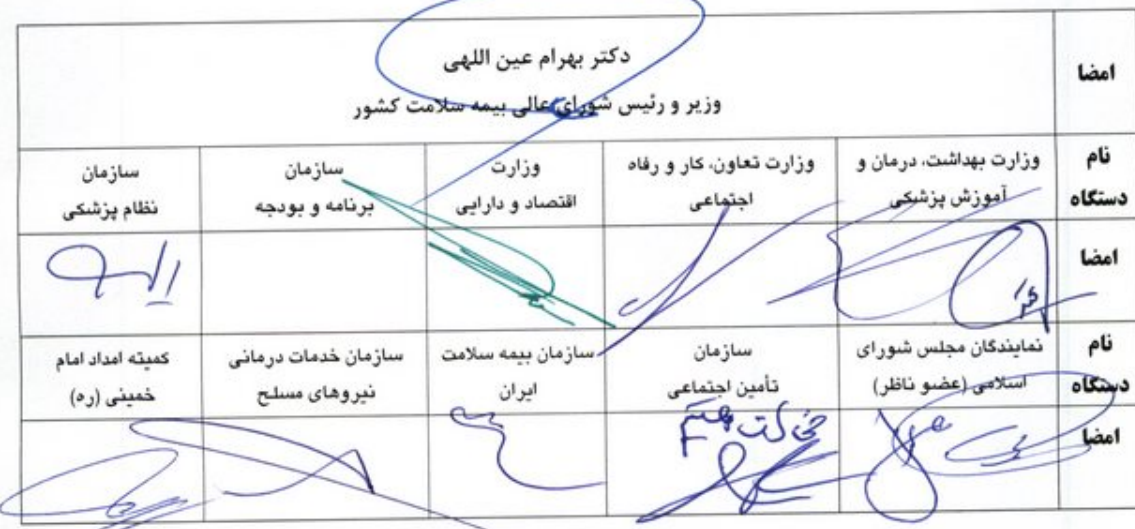 امضا
دکتر بهرام عین اللهی
وزیر و رئیس شورای عالی بیمه سلامت کشور
نام
دستگاه
وزارت بهداشت، درمان و
آموزش پزشکی
وزارت تعاون، کار و رفاه
اجتماعی
وزارت
اقتصاد و دارایی
سازمان
برنامه و بودجه
سازمان
نظام پزشکی
امضا
نام
دستگاه
نمایندگان مجلس شورای
اسلامی (عضو ناظر)
سازمان
تأمین اجتماعی
سازمان بیمه سلامت
ایران
سازمان خدمات درمانی
نیروهای مسلح
کمیته امداد امام
خمینی (ره)
امضا